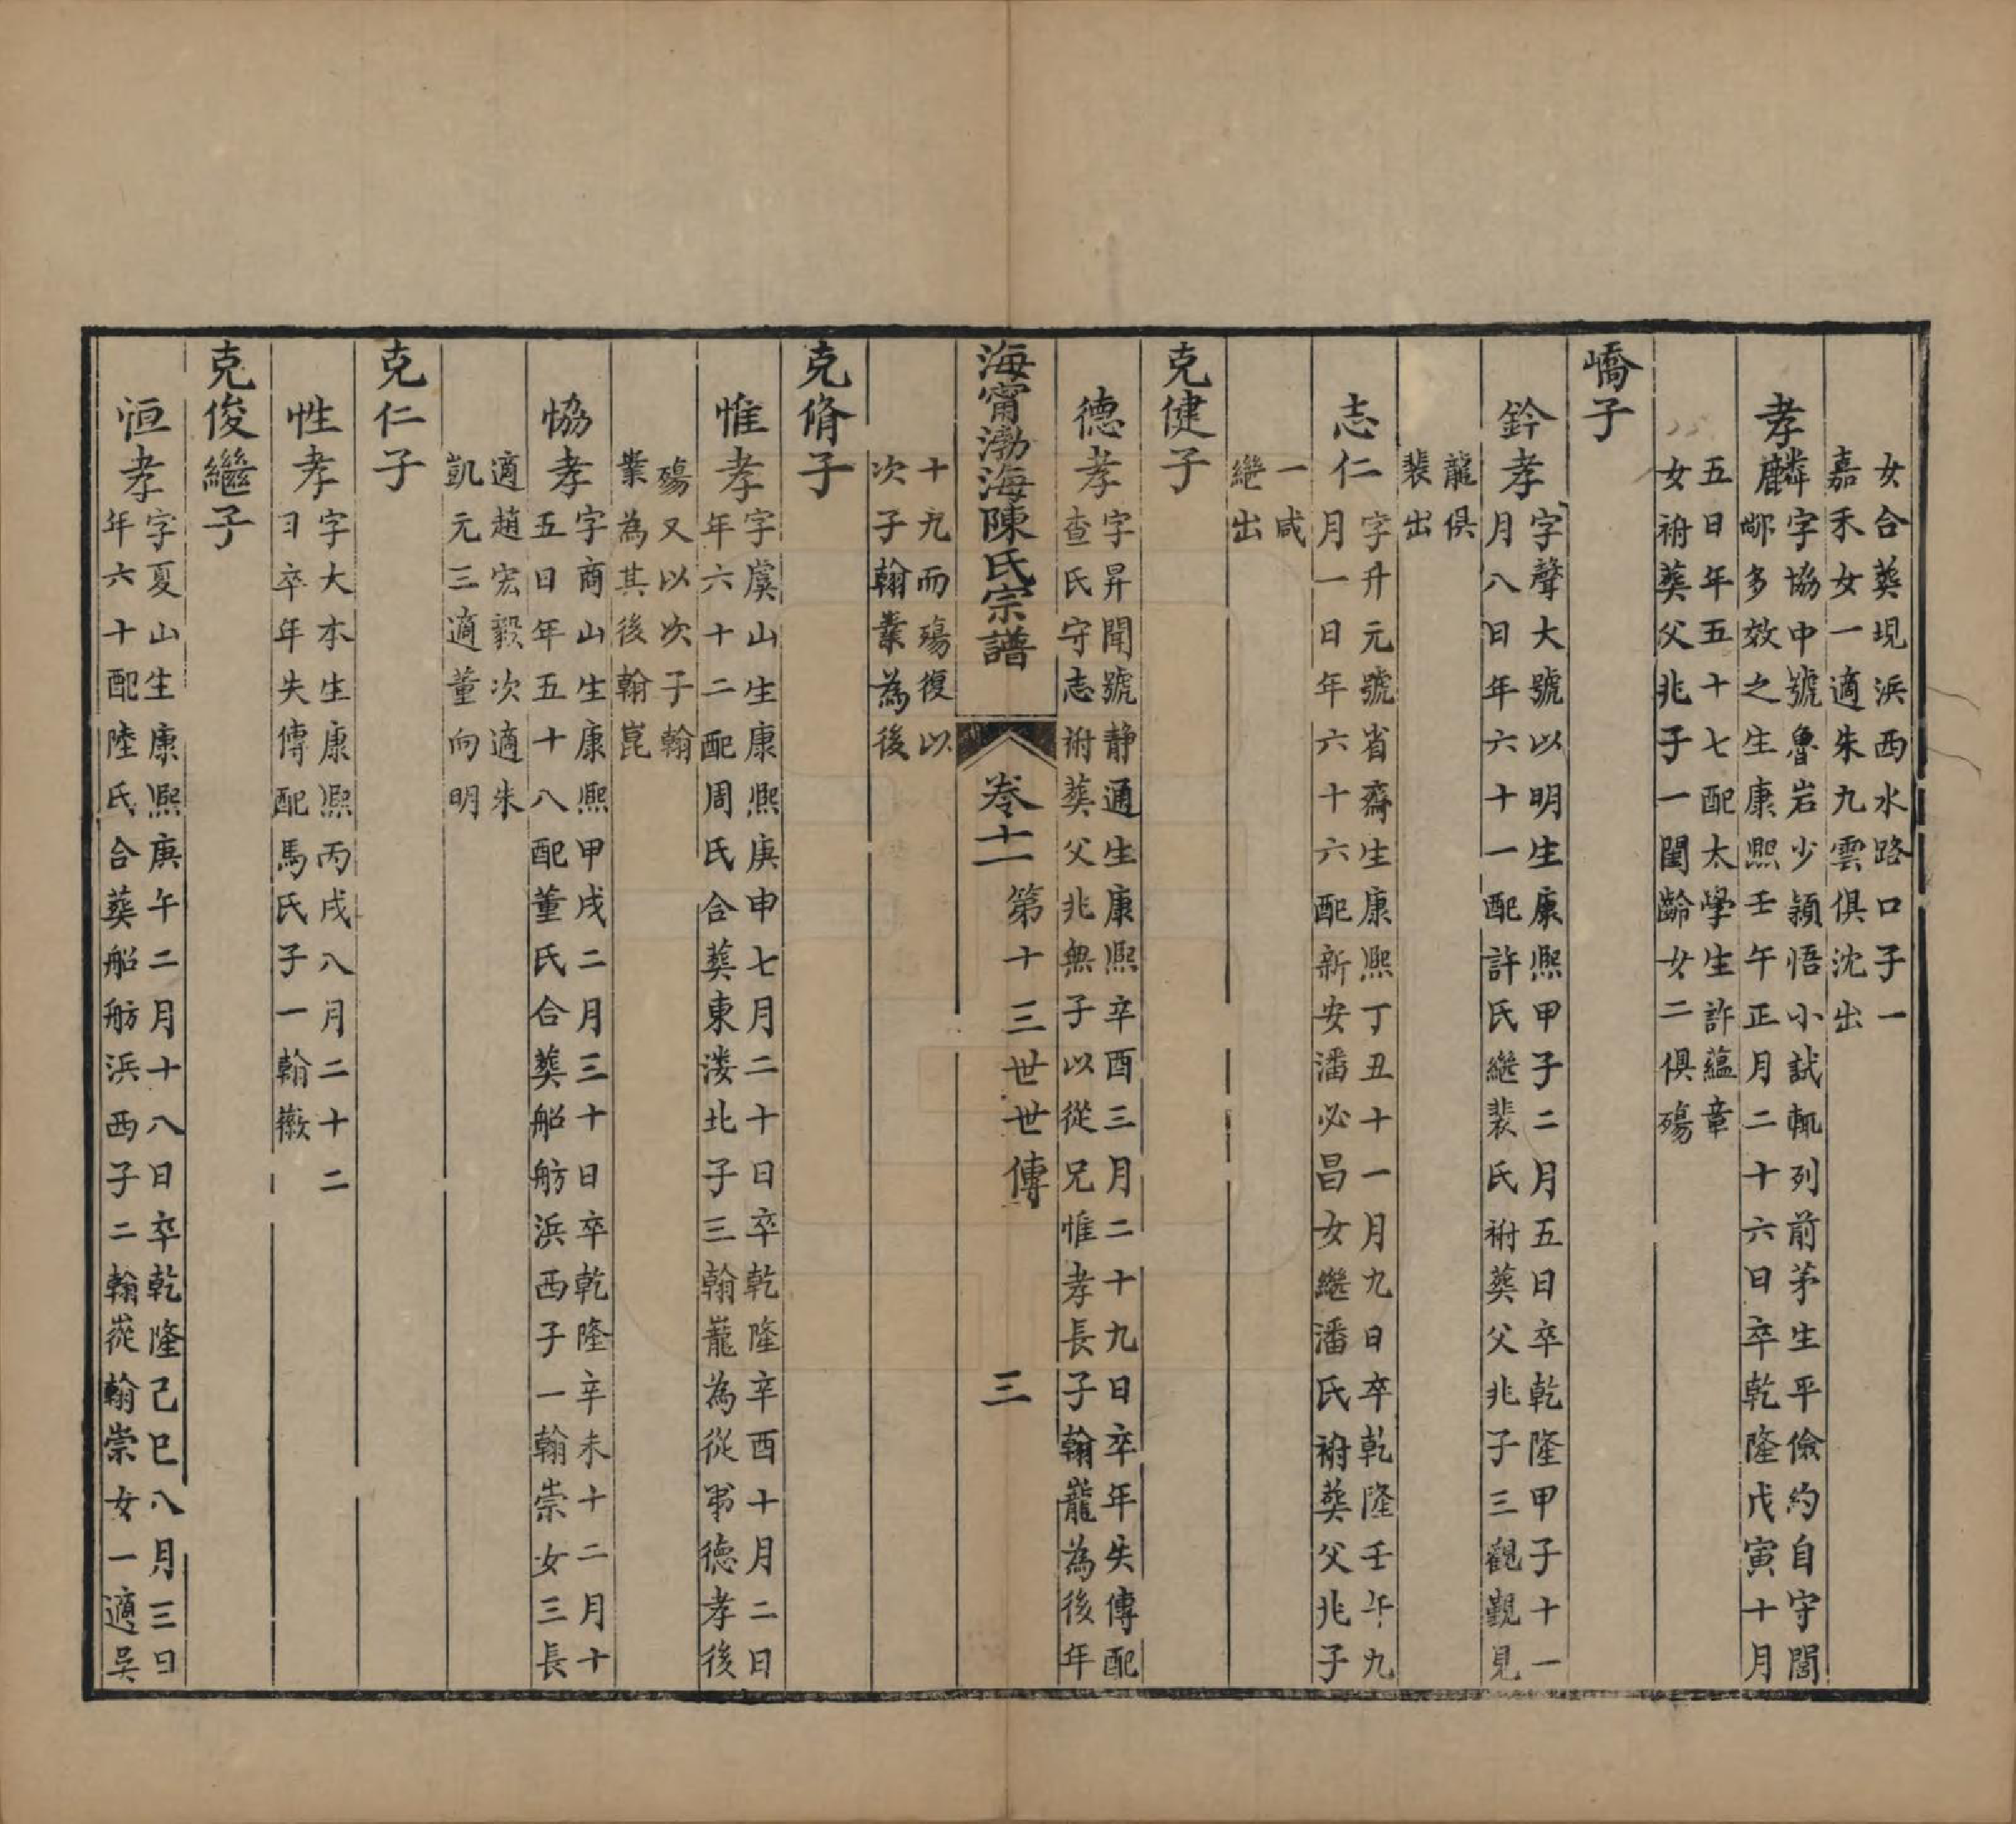 女合葬現浜西水路口子一
嘉禾女一適朱九雲俱沈出
孝麟
字協中號魯岩少穎悟小試輒列前茅生平儉約自守閭
鄰多效之生康熙壬午正月二十六日卒乾隆戊寅十月
五日年五十七配太學生許蘊章
女祔葬父兆子一閏齡女二俱殤
嶠子
鈐孝
字聲大號以明生康熙甲子二月五日卒乾隆甲子十一
月八日年六十一配許氏繼裴氏祔葬父兆子三觀覲見
龍俱
裴出
志仁
字升元號省齋生康熙丁丑十一月九日卒乾隆壬午九
月一日年六十六配新安潘必昌女繼潘氏祔葬父兆子
一咸
繼出
克健子
德孝
字昇聞號静通生康熙辛酉三月二十九日卒年失傳配
查氏守志祔葬父兆無子以從兄惟孝長子翰巃為後年
海甯渤海陳氏宗譜
卷十一
第十三世世傳
三
十九而殤復以
次子翰嶪為後
克脩子
惟孝
字虞山生康熙庚申七月二十日卒乾隆辛酉十月二日
年六十二配周氏合葬東漊北子三翰巃為從弟德孝後
殤又以次子翰
嶪為其後翰崑
恊孝
字商山生康熙甲戌二月三十日卒乾隆辛未十二月十
五日年五十八配董氏合葬船舫浜西子一翰崇女三長
適趙宏毅次適朱
凱元三適董向明
克仁子
性孝
字大本生康熙丙戌八月二十二
日卒年失傳配馬氏子一翰嶶
克俊繼子
恒孝
字夏山生康熙庚午二月十八日卒乾隆己巳八月三日
年六十配陸氏合葬船舫浜西子二翰嵸翰崇女一適吴